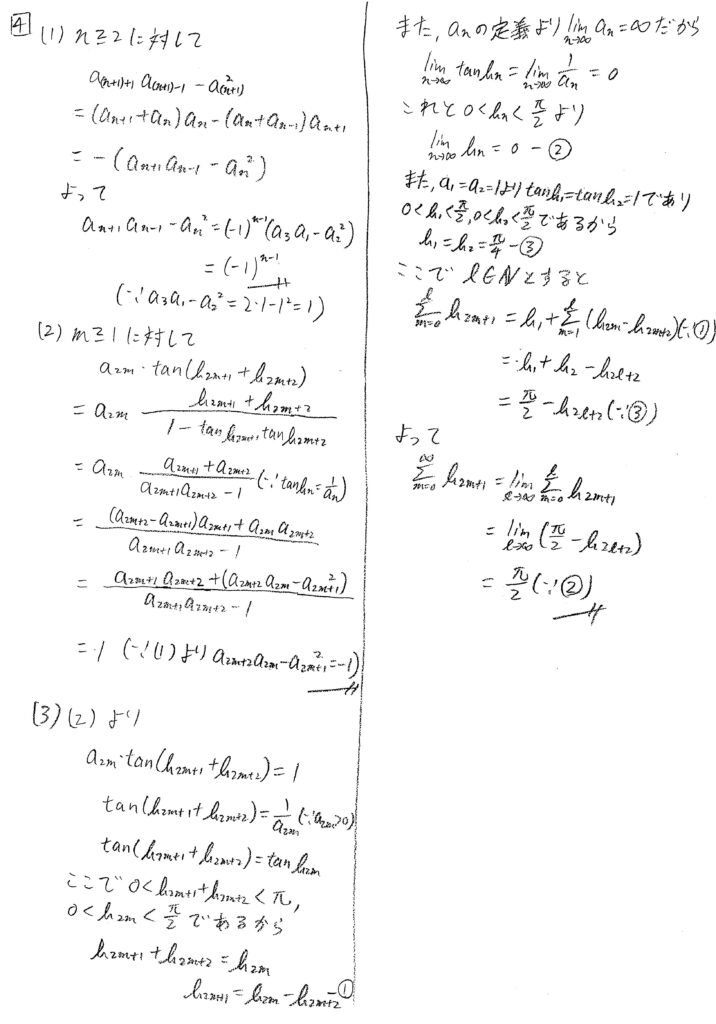 4
(1) n≧2に対して
a(n+1)+1 a(n+1)-1 - a²(n+1)
= (an+1 + an) an - (an + an-1) an+1
= -(an+1 an-1 - an²)
よって
an+1 an-1 - an² = (-1)^n-1 (a3 a1 - a2²)
= (-1)^n-1
(∵ a3 a1 - a2² = 2・1 - 1² = 1)
(2) m≧1に対して
a2m・tan(h2m+1 + h2m+2)
= a2m (h2m+1 + h2m+2)/(1 - tan h2m+1 tan h2m+2)
= a2m (a2m+1 + a2m+2)/(a2m+1 a2m+2 - 1) (∵ tan hn = 1/an)
= ((a2m+2 - a2m+1) a2m+1 + a2m a2m+2)/(a2m+1 a2m+2 - 1)
= (a2m+1 a2m+2 + (a2m+2 a2m - a²2m+1))/(a2m+1 a2m+2 - 1)
= 1 (∵ (1)より a2m+2 a2m - a²2m+1 = -1)
(3) (2)より
a2m・tan(h2m+1 + h2m+2) = 1
tan(h2m+1 + h2m+2) = 1/a2m (∵ a2m > 0)
tan(h2m+1 + h2m+2) = tan h2m
ここで 0 < h2m+1 + h2m+2 < π,
0 < h2m < π/2 であるから
h2m+1 + h2m+2 = h2m
h2m+1 = h2m - h2m+2 - ①
また, anの定義より lim n→∞ an = ∞ だから
lim n→∞ tan hn = lim n→∞ 1/an = 0
これと 0 < hn < π/2 より
lim n→∞ hn = 0 - ②
また, a1 = a2 = 1より tan h1 = tan h2 = 1であり
0 < h1 < π/2, 0 < h2 < π/2 であるから
h1 = h2 = π/4 - ③
ここで l∈N とすると
l Σ m=0 h2m+1 = h1 + l Σ m=1 (h2m - h2m+2) (∵①)
= h1 + h2 - h2l+2
= π/2 - h2l+2 (∵③)
よって
∞ Σ m=0 h2m+1 = lim l→∞ l Σ m=0 h2m+1
= lim l→∞ (π/2 - h2l+2)
= π/2 (∵②)